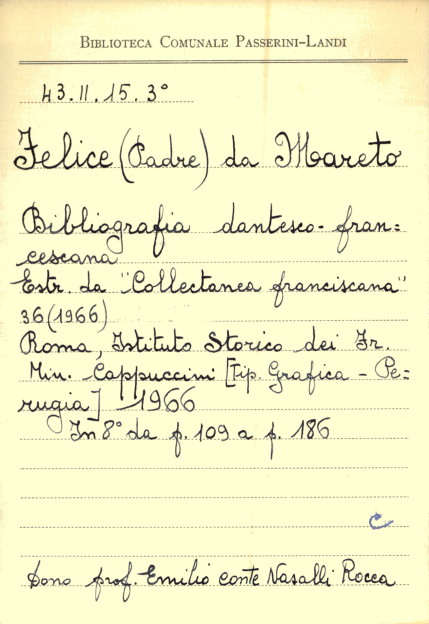 BIBLIOTECA COMUNALE PASSERINI-LANDI
43.II.15.3°
Felice (Padre) da Mareto
Bibliografia dantesco-fran=
cescana
Estr. da "Collectanea franciscana"
36 (1966)
Roma, Istituto Storico dei Fr.
Min. Cappuccini [Tip. Grafica - Pe=
rugia] 1966
In 8° da p. 109 a p. 186
C
Dono prof. Emilio conte Nasalli Rocca